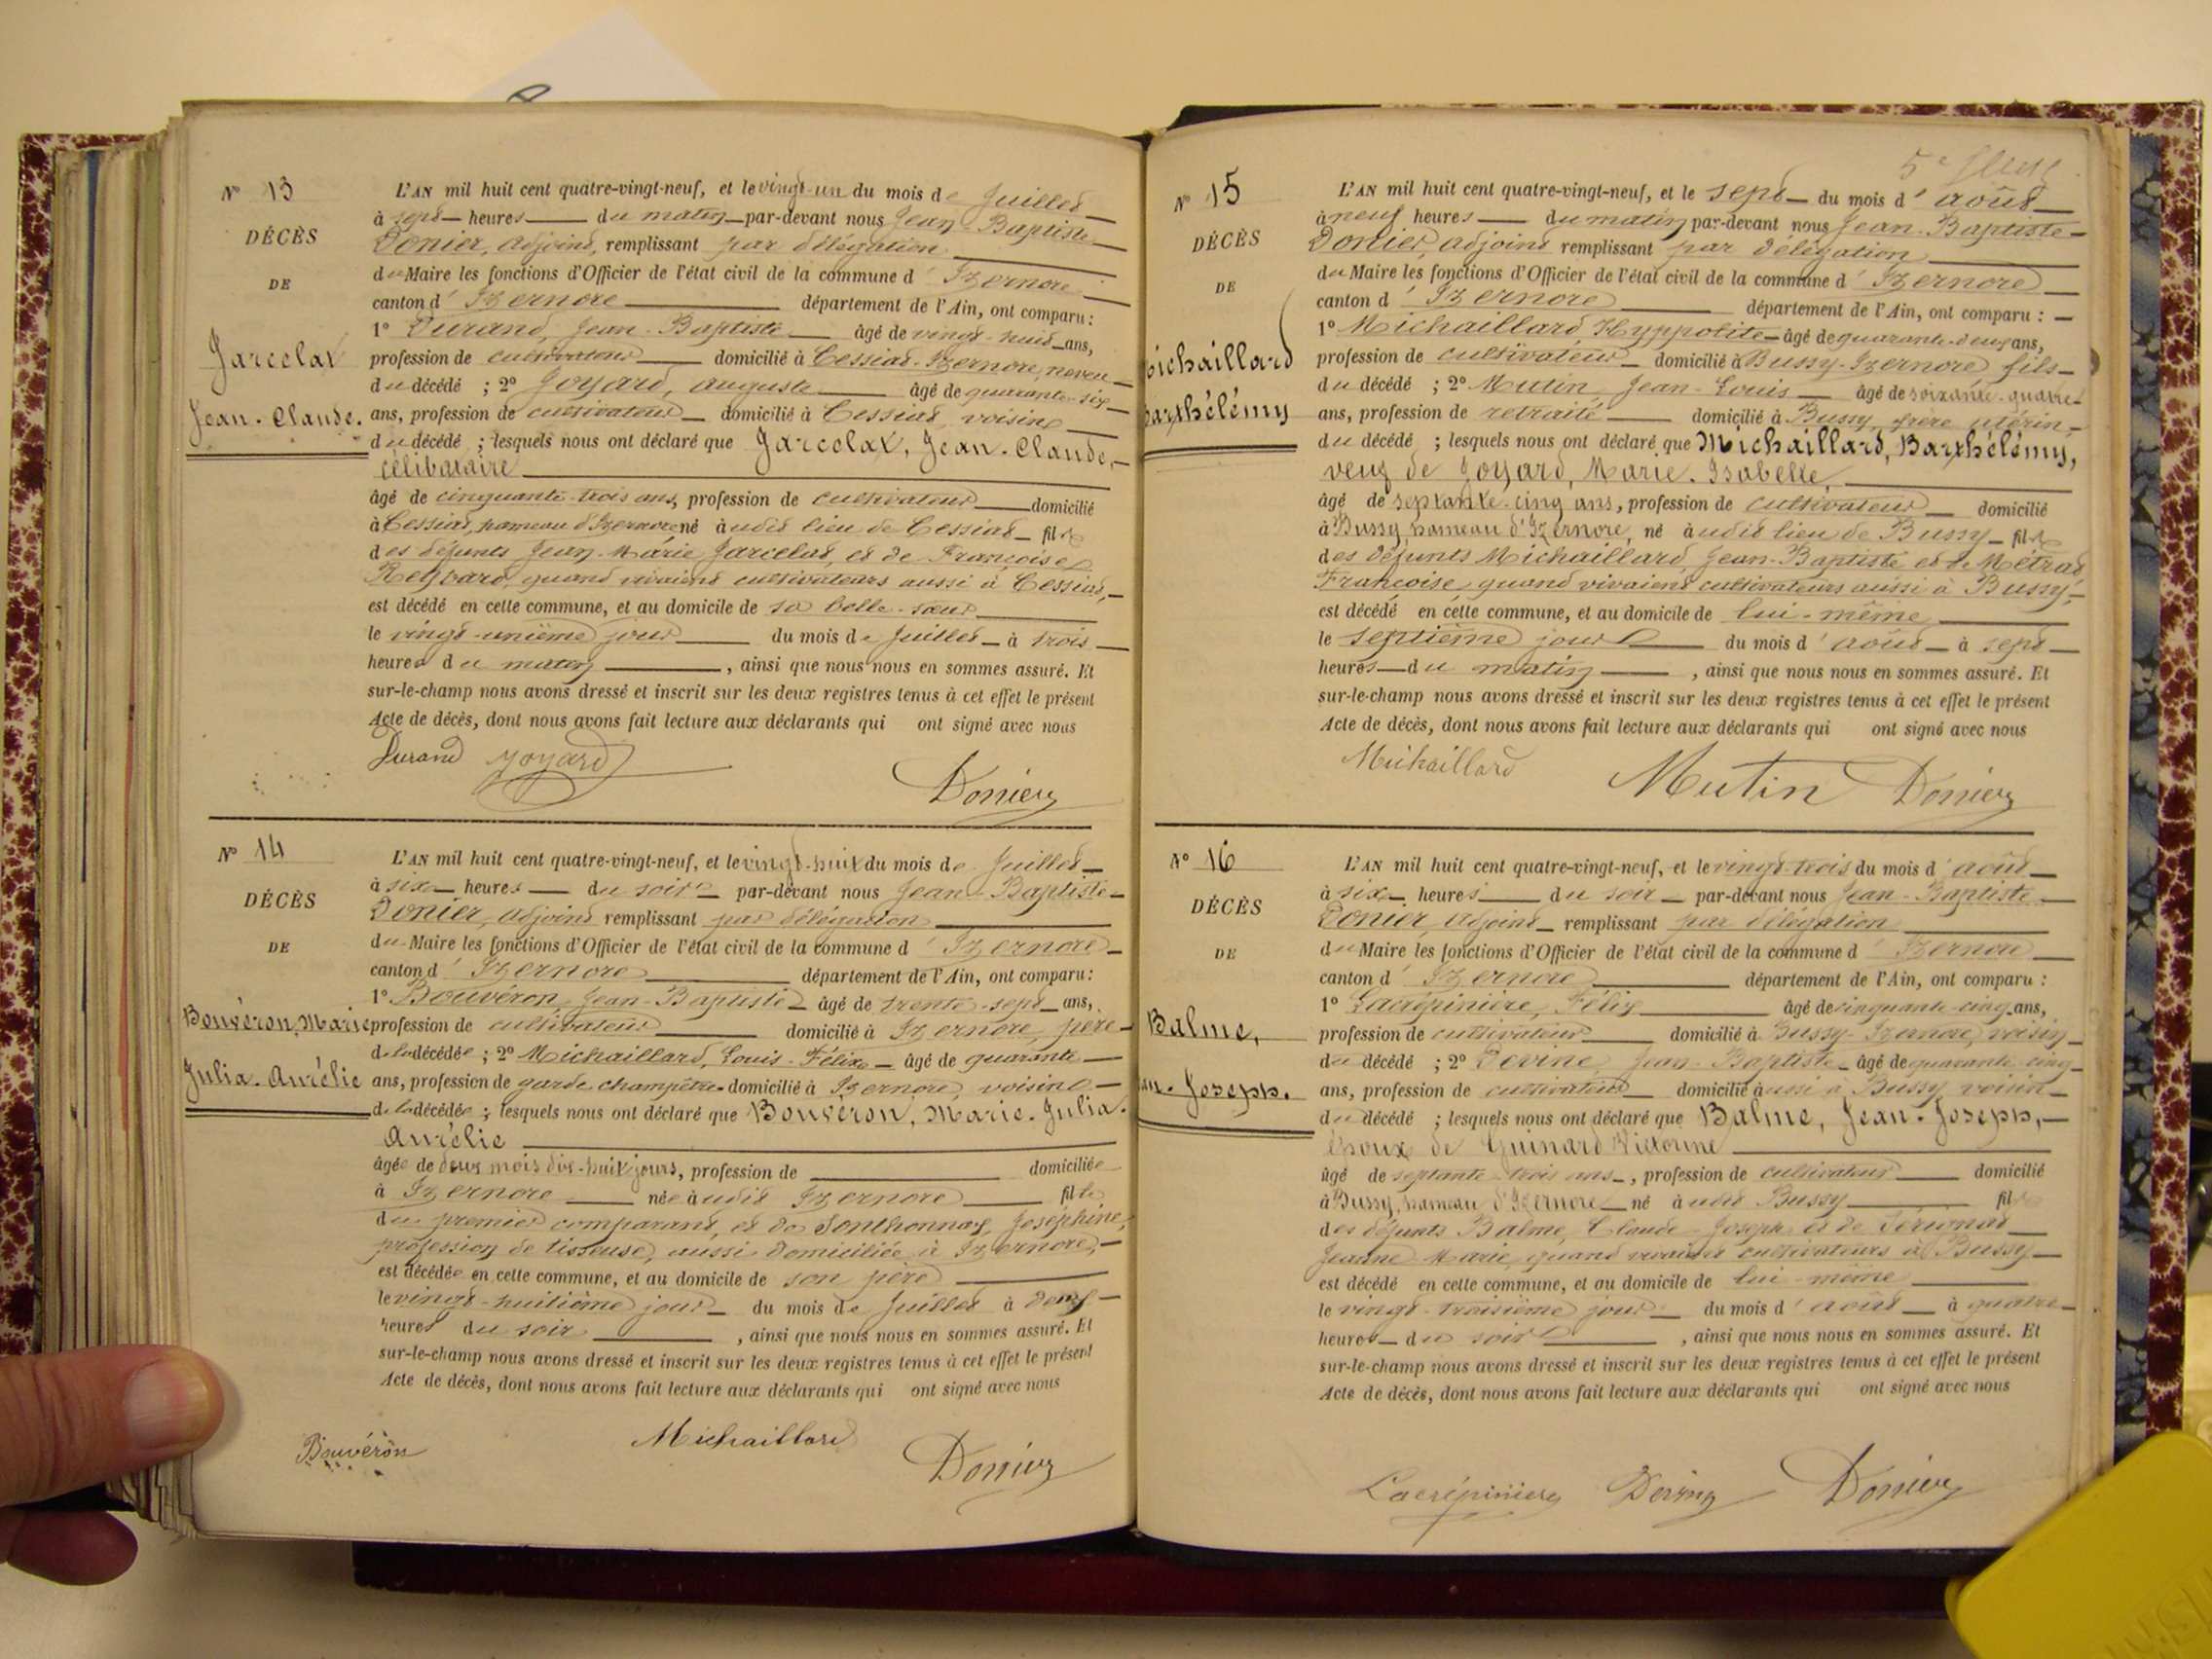 N° 13
DÉCÈS
DE
Jarcelat
Jean-Claude.
L'AN mil huit cent quatre-vingt-neuf, et le vingt-un du mois de Juillet
à sept heures du matin par-devant nous Jean-Baptiste
Donier, adjoint, remplissant par délégation
du Maire les fonctions d'Officier de l'état civil de la commune d'Izernore
canton d'Izernore département de l'Ain, ont comparu :
1° Durand, Jean-Baptiste âgé de vingt-huit ans,
profession de cultivateur domicilié à Cessiat-Izernore, neveu
du décédé ; 2° Joyard, Auguste âgé de quarante-six
ans, profession de cultivateur domicilié à Cessiat voisin
du décédé ; lesquels nous ont déclaré que Jarcelat, Jean-Claude,
célibataire
âgé de cinquante-trois ans, profession de cultivateur domicilié
à Cessiat, hameau d'Izernore né audit lieu de Cessiat fils
des défunts Jean-Marie Jarcelat, et de Françoise
Reybard, quand vivaient cultivateurs aussi à Cessiat,
est décédé en cette commune, et au domicile de sa belle-sœur
le vingt-unième jour du mois de Juillet à trois
heures du matin, ainsi que nous nous en sommes assuré. Et
sur-le-champ nous avons dressé et inscrit sur les deux registres tenus à cet effet le présent
Acte de décès, dont nous avons fait lecture aux déclarants qui ont signé avec nous
Durand Joyard
Donier
N° 14
DÉCÈS
DE
Bouvéron, Marie
Julia-Aurélie
L'AN mil huit cent quatre-vingt-neuf, et le vingt-huit du mois de Juillet
à six heures du soir par-devant nous Jean-Baptiste
Donier, adjoint remplissant par délégation
du Maire les fonctions d'Officier de l'état civil de la commune d'Izernore
canton d'Izernore département de l'Ain, ont comparu :
1° Bouvéron, Jean-Baptiste âgé de trente-sept ans,
profession de cultivateur domicilié à Izernore, père
de la décédée ; 2° Michaillard, Louis-Félix âgé de quarante
ans, profession de garde champêtre domicilié à Izernore, voisin
de la décédée ; lesquels nous ont déclaré que Bouvéron, Marie-Julia-
Aurélie
âgée de deux mois dix-huit jours, profession de domiciliée
à Izernore née audit Izernore fille
du premier comparant, et de Sonthonnax, Joséphine,
profession de tisseuse, aussi domiciliée à Izernore,
est décédée en cette commune, et au domicile de son père
le vingt-huitième jour du mois de Juillet à deux
heures du soir, ainsi que nous nous en sommes assuré. Et
sur-le-champ nous avons dressé et inscrit sur les deux registres tenus à cet effet le présent
Acte de décès, dont nous avons fait lecture aux déclarants qui ont signé avec nous
Bouvéron Michaillard Donier
5e
N° 15
DÉCÈS
DE
Michaillard
Barthélémy
L'AN mil huit cent quatre-vingt-neuf, et le sept du mois d'août
à neuf heures du matin par-devant nous Jean-Baptiste
Donier, adjoint remplissant par délégation
du Maire les fonctions d'Officier de l'état civil de la commune d'Izernore
canton d'Izernore département de l'Ain, ont comparu :
1° Michaillard Hyppolite âgé de quarante-deux ans,
profession de cultivateur domicilié à Bussy-Izernore fils
du décédé ; 2° Mutin, Jean-Louis âgé de soixante-quatre
ans, profession de retraité domicilié à Bussy, frère utérin,
du décédé ; lesquels nous ont déclaré que Michaillard, Barthélémy,
veuf de Joyard, Marie-Isabelle,
âgé de septante-cinq ans, profession de cultivateur domicilié
à Bussy, hameau d'Izernore, né audit lieu de Bussy fils
des défunts Michaillard, Jean-Baptiste et de Métras
Françoise, quand vivaient cultivateurs aussi à Bussy,
est décédé en cette commune, et au domicile de lui-même
le septième jour du mois d'août à sept
heures du matin, ainsi que nous nous en sommes assuré. Et
sur-le-champ nous avons dressé et inscrit sur les deux registres tenus à cet effet le présent
Acte de décès, dont nous avons fait lecture aux déclarants qui ont signé avec nous
Michaillard Mutin Donier
N° 16
DÉCÈS
DE
Balme,
an-Joseph.
L'AN mil huit cent quatre-vingt-neuf, et le vingt-trois du mois d'août
à six heures du soir par-devant nous Jean-Baptiste
Donier, adjoint remplissant par délégation
du Maire les fonctions d'Officier de l'état civil de la commune d'Izernore
canton d'Izernore département de l'Ain, ont comparu :
1° Lacrépinière, Félix âgé de cinquante-cinq ans,
profession de cultivateur domicilié à Bussy-Izernore, voisin
du décédé ; 2° Jean-Baptiste âgé de quarante-cinq
ans, profession de cultivateur domicilié aussi à Bussy voisin
du décédé ; lesquels nous ont déclaré que Balme, Jean-Joseph,
époux de Guinard Victorine
âgé de septante-trois ans, profession de cultivateur domicilié
à Bussy, hameau d'Izernore né audit Bussy fils
des défunts Balme, Claude-Joseph et de
Jeanne-Marie, quand vivaient cultivateurs à Bussy
est décédé en cette commune, et au domicile de lui-même
le vingt-troisième jour du mois d'août à quatre
heures du soir, ainsi que nous nous en sommes assuré. Et
sur-le-champ nous avons dressé et inscrit sur les deux registres tenus à cet effet le présent
Acte de décès, dont nous avons fait lecture aux déclarants qui ont signé avec nous
Lacrépinière Donier